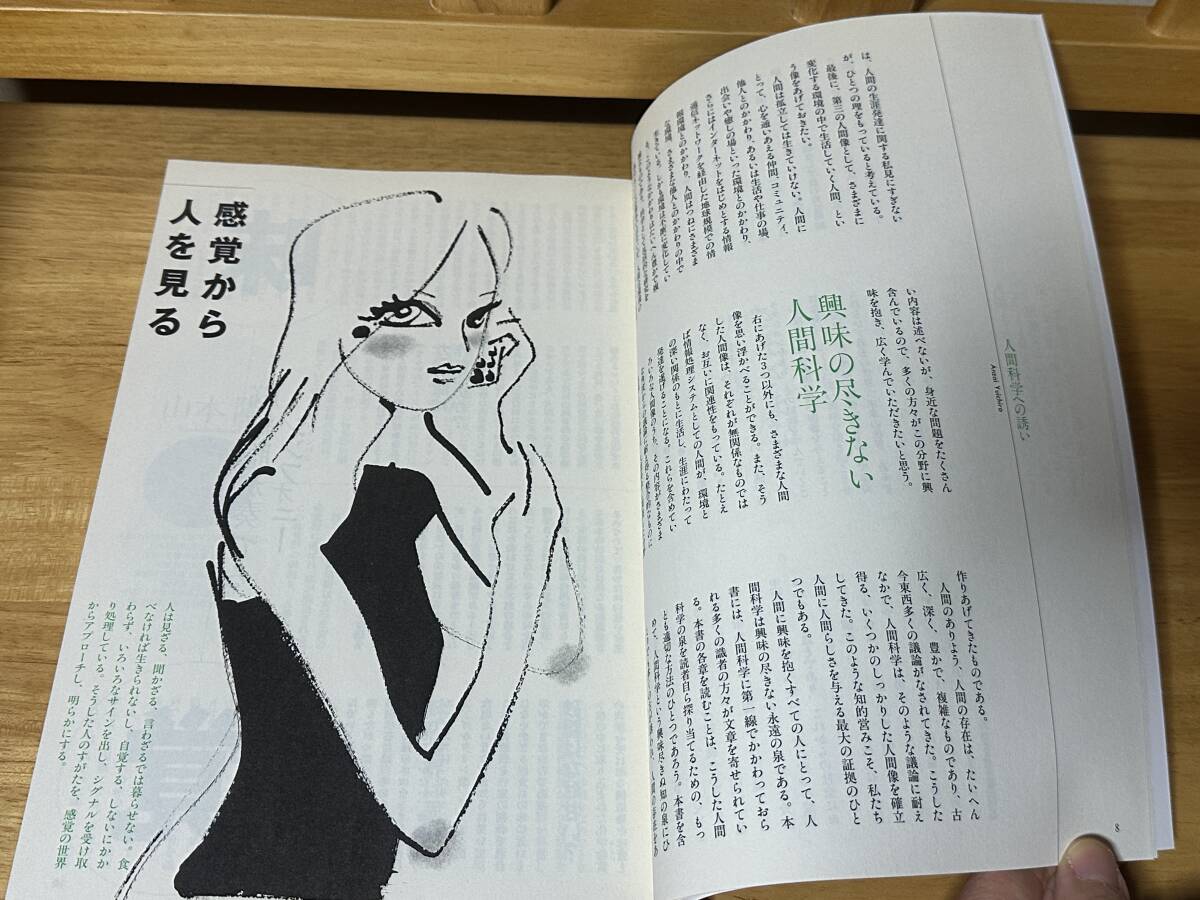 人間科学への誘い
Arami Yoichiro
は、人間の生涯発達に関する私見にすぎない
が、ひとつの理をもっていると考えている。
最後に、第三の人間像として、さまざまに
変化する環境の中で生活していく人間、とい
う像をあげておきたい。
人間は孤立しては生きていけない。人間に
とって、心を通いあえる仲間、コミュニティ、
他人とのかかわり、あるいは生活や仕事の場、
出会いや癒しの場といった環境とのかかわり、
さらにはインターネットをはじめとする情報
通信ネットワークを経由した地球規模での情
報環境とのかかわり、人間はつねにさまざま
な環境、さまざまな他人とのかかわりの中で
生きている。しかも環境は不断に変化してい
い内容は述べないが、身近な問題をたくさん
含んでいるので、多くの方々がこの分野に興
味を抱き、広く学んでいただきたいと思う。
興味の尽きない
人間科学
右にあげた3つ以外にも、さまざまな人間
像を思い浮かべることができる。また、そう
した人間像は、それぞれが無関係なものでは
なく、お互いに関連性をもっている。たとえ
ば情報処理システムとしての人間が、環境と
の深い関係のもとに生活し、生涯にわたって
発達を遂げることになる。これらを含めてい
ろいろな人間像のうち、その内容がさまざま
作りあげてきたものである。
人間のありよう、人間の存在は、たいへん
広く、深く、豊かで、複雑なものであり、古
今東西多くの議論がなされてきた。こうした
なかで、人間科学は、そのような議論に耐え
得る、いくつかのしっかりした人間像を確立
してきた。このような知的営みこそ、私たち
人間に人間らしさを与える最大の証拠のひと
つでもある。
人間に興味を抱くすべての人にとって、人
間科学は興味の尽きない永遠の泉である。本
書には、人間科学に第一線でかかわっておら
れる多くの識者の方々が文章を寄せられてい
る。本書の各章を読むことは、こうした人間
科学の泉を読者自ら探り当てるための、もっ
とも適切な方法のひとつであろう。本書を含
めて、人間科学という興味尽きぬ知の泉にひ
8
感覚から
人を見る
人は見ざる、聞かざる、言わざるでは暮らせない。食
べなければ生きられないし、自覚する、しないにかか
わらず、いろいろなサインを出し、シグナルを受け取
り処理している。そうした人のすがたを、感覚の世界
からアプローチし、明らかにする。